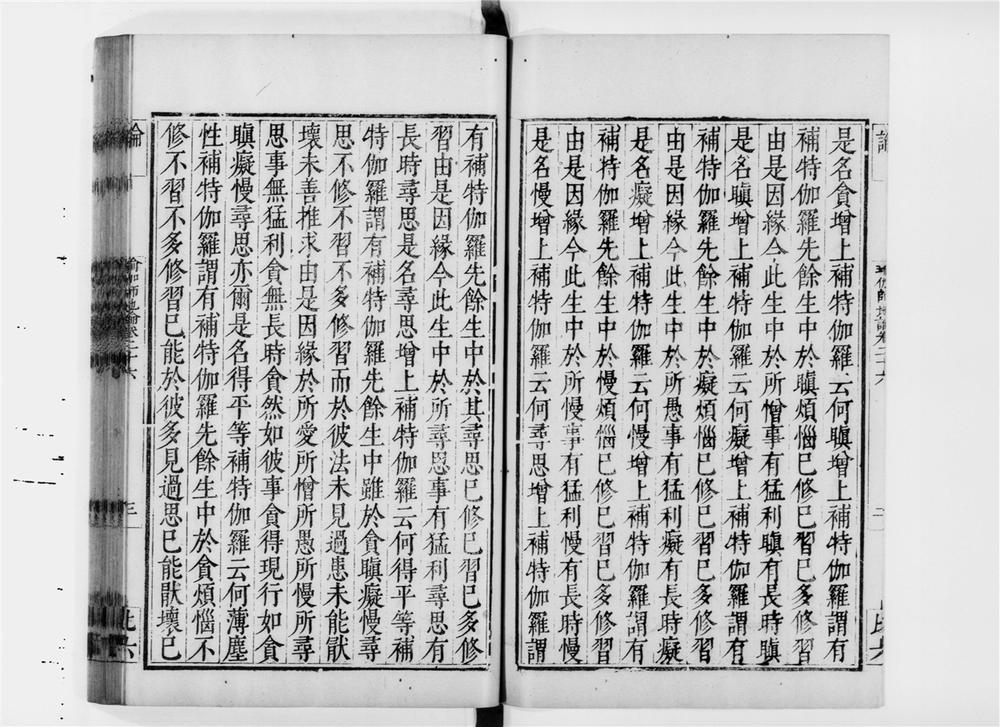 是名貪增上補特伽羅云何瞋增上補特伽羅謂有
補特伽羅先餘生中於瞋煩惱已修已習已多修習
由是因緣今此生中於所憎事有猛利瞋有長時瞋
是名瞋增上補特伽羅云何癡增上補特伽羅謂有
補特伽羅先餘生中於癡煩惱已修已習已多修習
由是因緣今此生中於所愚事有猛利癡有長時癡
是名癡增上補特伽羅云何慢增上補特伽羅謂有
補特伽羅先餘生中於慢煩惱已修已習已多修習
由是因緣今此生中於所慢事有猛利慢有長時慢
是名慢增上補特伽羅云何尋思增上補特伽羅謂
有補特伽羅先餘生中於其尋思已修已習已多修
習由是因緣今此生中於所尋思事有猛利尋思有
長時尋思是名尋思增上補特伽羅云何得平等補
特伽羅謂有補特伽羅先餘生中雖於貪瞋癡慢尋
思不修不習不多修習而於彼法未見過患未能猒
壞未善推求由是因緣於所愛所憎所愚所慢所尋
思事無猛利貪無長時貪然如彼事貪得現行如貪
瞋癡慢尋思亦爾是名得平等補特伽羅云何薄塵
性補特伽羅謂有補特伽羅先餘生中於貪煩惱不
修不習不多修習已能於彼多見過患已能猒壞已
論
瑜伽師地論卷二十六
三